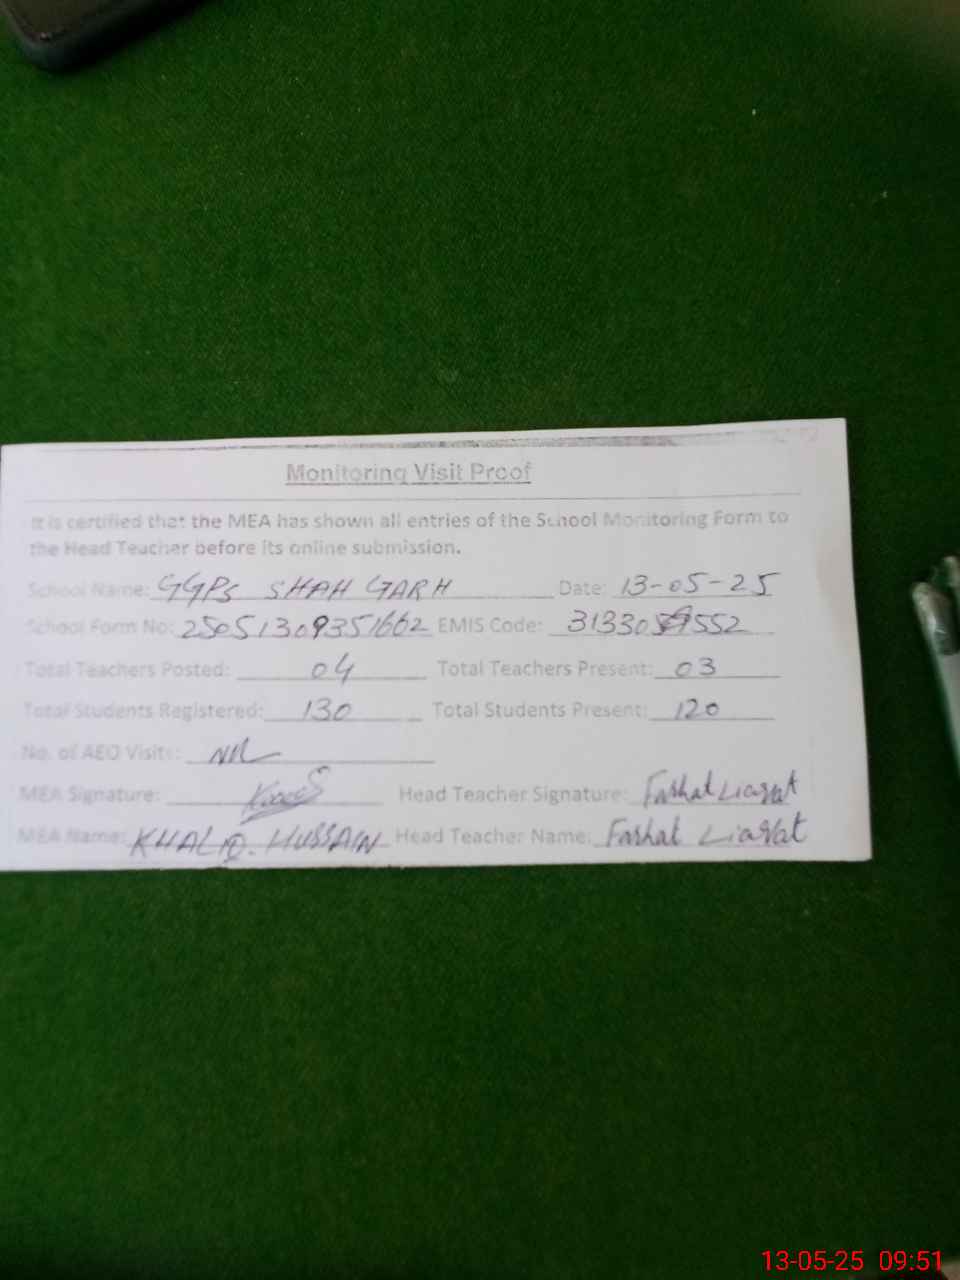 Monitoring Visit Proof
It is certified that the MEA has shown all entries of the School Monitoring Form to
the Head Teacher before its online submission.
School Name: GGPS SHAH GARH Date: 13-05-25
School Form No: 25051309351662 EMIS Code:
Total Teachers Posted: 04 Total Teachers Present: 03
Total Students Registered: 130 Total Students Present: 120
No. of AEO Visits: NIL
MEA Signature: Head Teacher Signature: Farhat Liaqat
MEA Name: KHALID. HUSSAIN Head Teacher Name: Farhat Liaqat
13-05-25 09:51